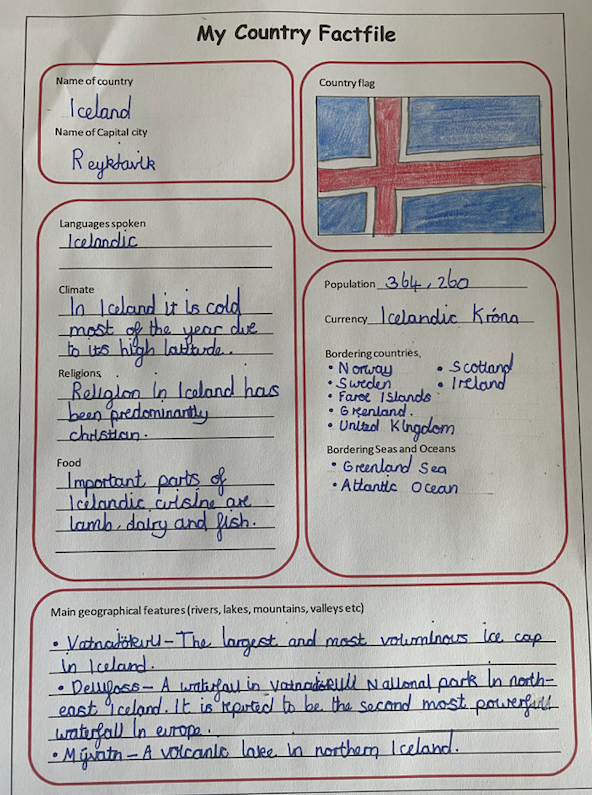 My Country Factfile
Name of country
Iceland
Name of Capital city
Reykjavik
Country flag
Languages spoken
Icelandic
Climate
In Iceland it is cold
most of the year due
to its high latitude.
Religions
Religion in Iceland has
been predominantly
christian.
Food
Important parts of
Icelandic cuisine are
lamb, dairy and fish.
Population 364,260
Currency Icelandic Króna
Bordering countries
• Norway • Scotland
• Sweden • Ireland
• Faroe Islands
• Greenland.
• United Kingdom
Bordering Seas and Oceans
• Greenland Sea
• Atlantic Ocean
Main geographical features (rivers, lakes, mountains, valleys etc)
• Vatnajökull – The largest and most voluminous ice cap
in Iceland.
• Detifoss – A waterfall in Vatnajökull National park in north-
east Iceland. It is reputed to be the second most powerfull
waterfall in europe.
• Mývatn – A volcanic lake in northern Iceland.